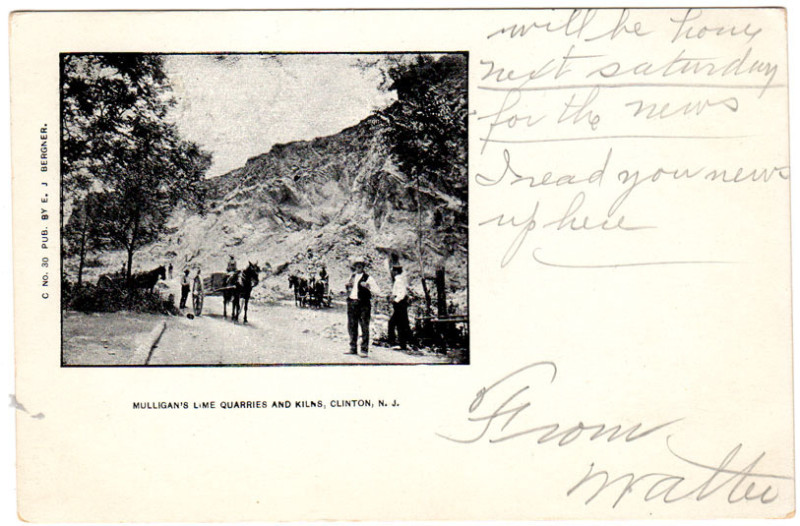 will be home
next saturday
for the news
I read you news
up here
From
Walter
C NO. 30 PUB. BY E. J BERGNER.
MULLIGAN'S LIME QUARRIES AND KILNS, CLINTON, N. J.